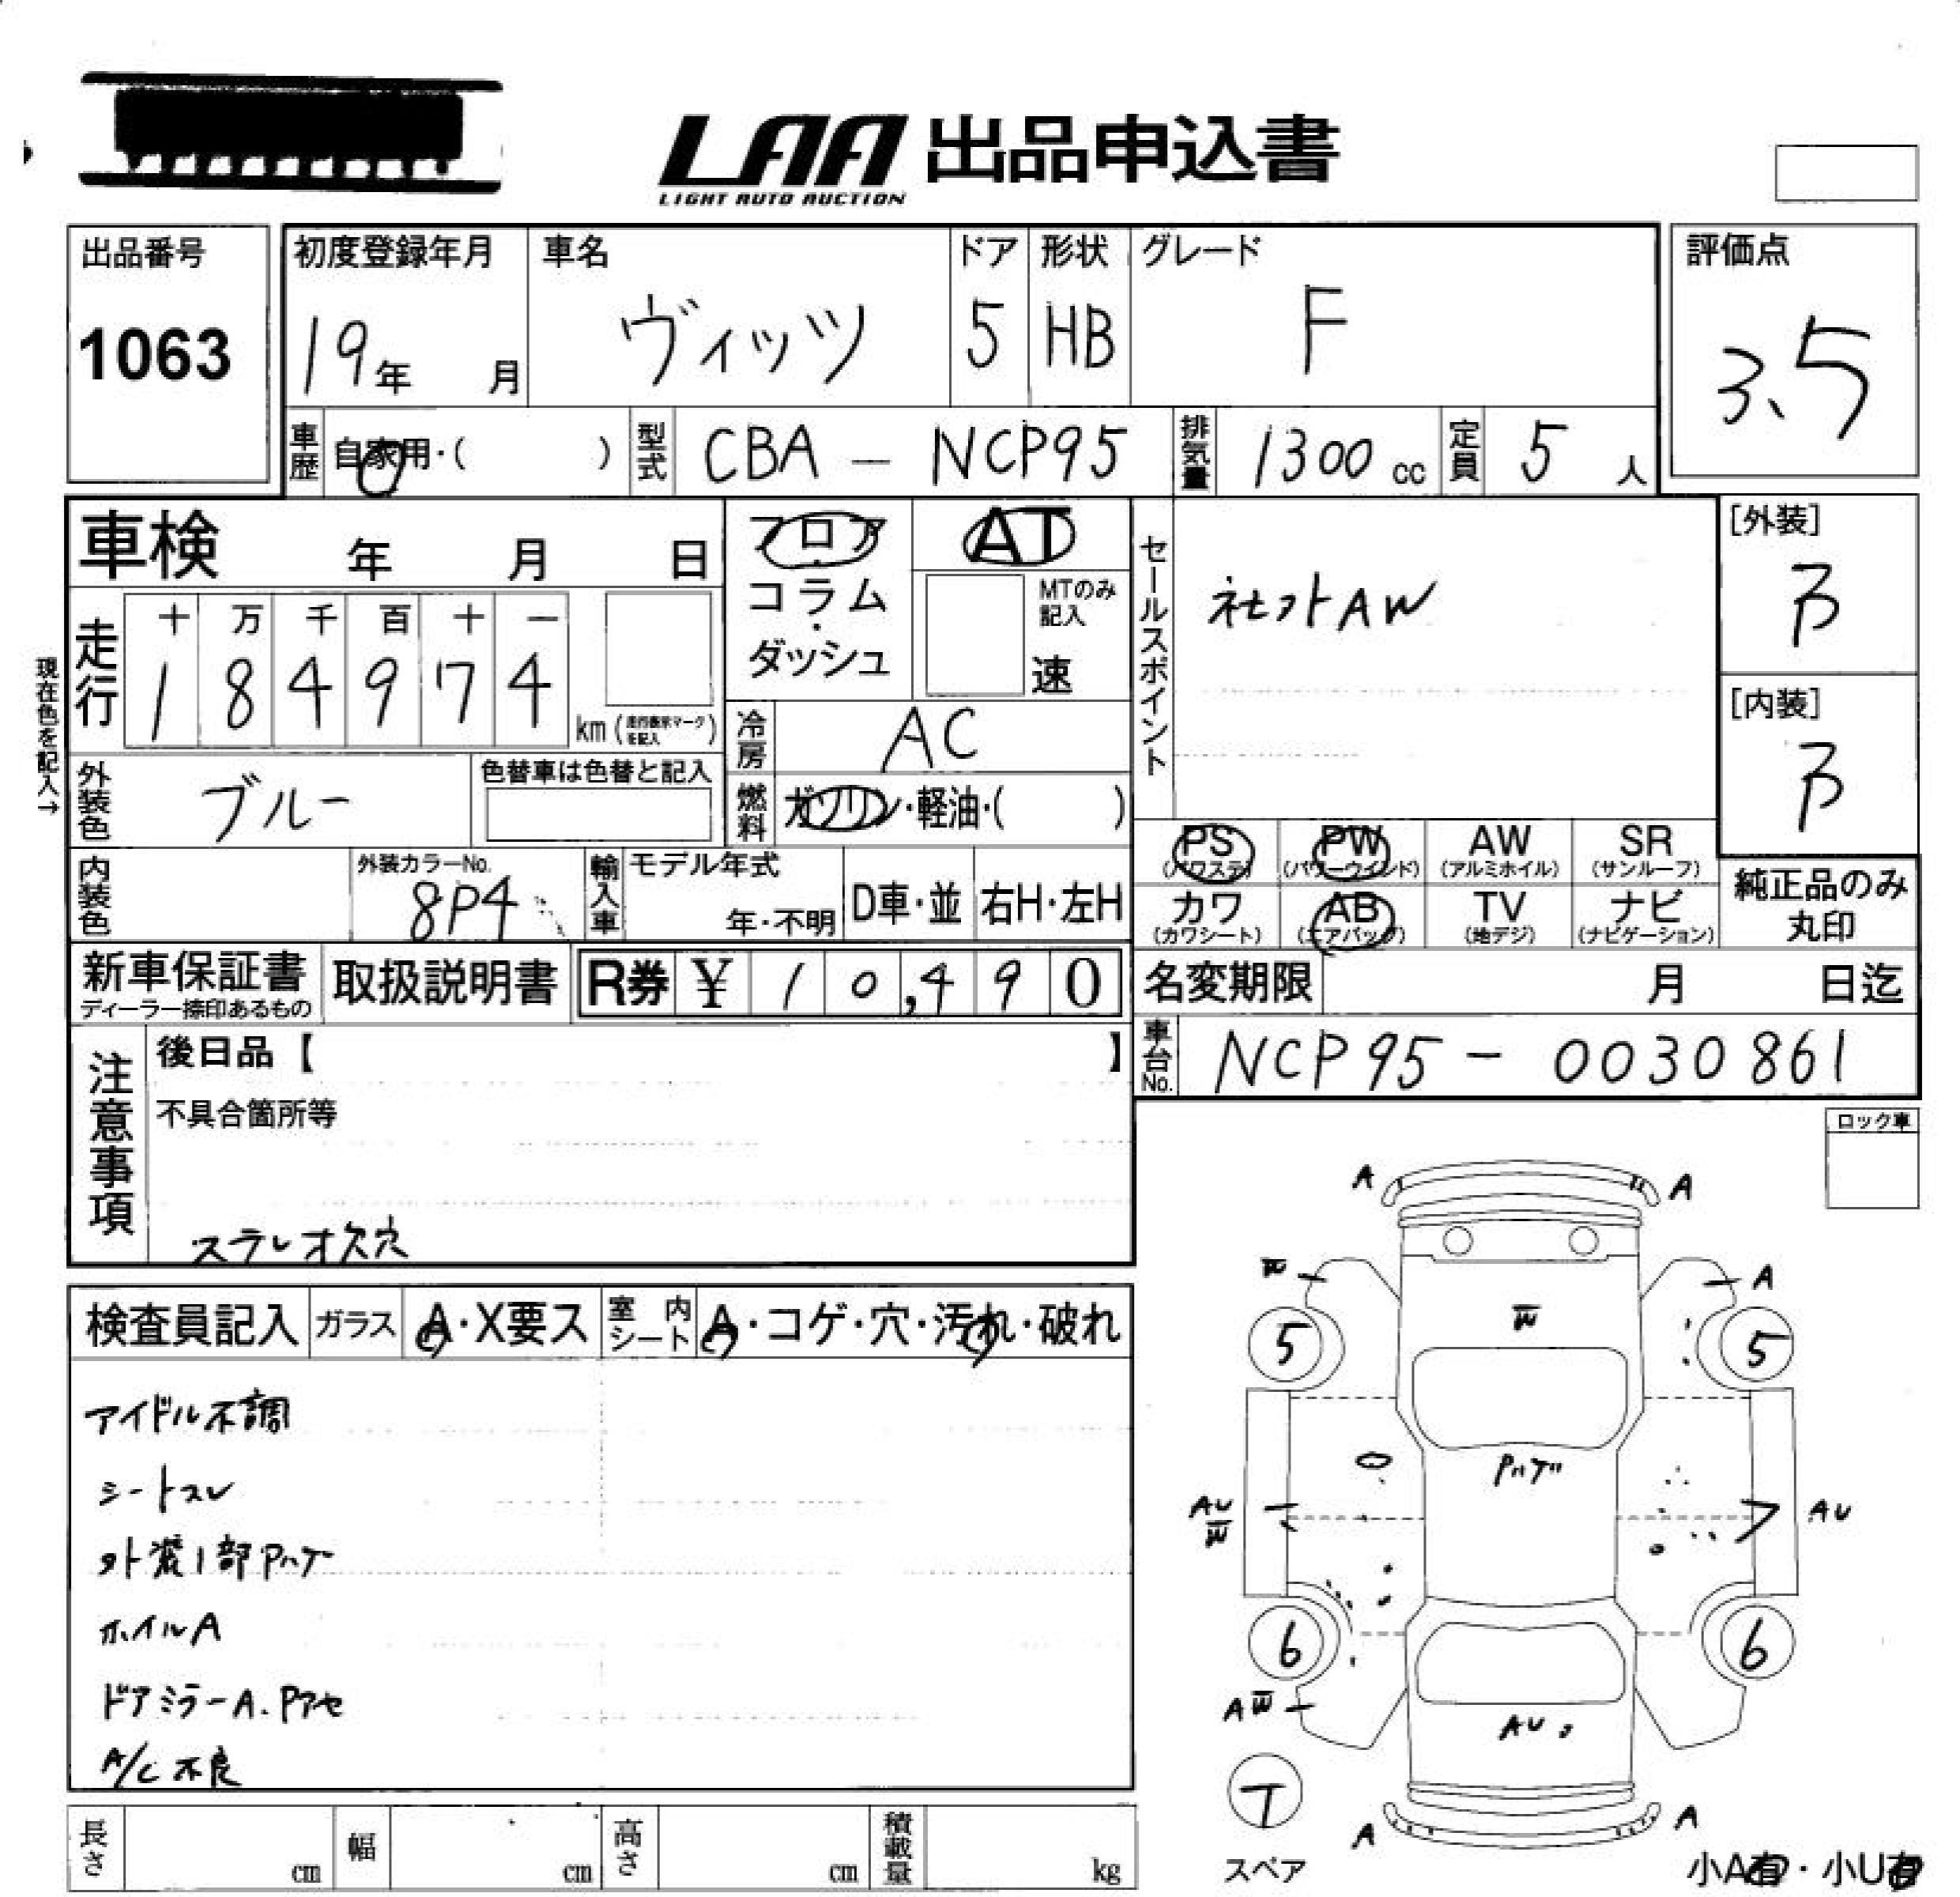 LAA 出品申込書
LIGHT AUTO AUCTION
出品番号
1063
初度登録年月
19年 月
車名
ヴィッツ
ドア
5
形状
HB
グレード
F
評価点
3.5
車歴 自家用・( )
型式 CBA - NCP95
排気量 1300 cc
定員 5 人
車検 年 月 日
フロア・コラム・ダッシュ
AT
MTのみ記入
速
セールスポイント
社外AW
[外装]
B
[内装]
B
現在色を記入→
走行
十 万 千 百 十 一
1 8 4 9 7 4
km (走行表示マークを記入)
冷房 AC
外装色 ブルー
色替車は色替と記入
燃料 ガソリン・軽油・( )
PS (パワステ)
PW (パワーウインド)
AW (アルミホイル)
SR (サンルーフ)
内装色
外装カラーNo.
8P4
輸入車
モデル年式
年・不明
D車・並
右H・左H
カワ (カワシート)
AB (エアバッグ)
TV (地デジ)
ナビ (ナビゲーション)
純正品のみ
丸印
新車保証書
ディーラー捺印あるもの
取扱説明書
R券 ¥ 10,490
名変期限 月 日迄
車台No. NCP95 - 0030861
注意事項
後日品【 】
不具合箇所等
ステレオ欠穴
ロック車
検査員記入
ガラス A・X要ス
室内シート A・コゲ・穴・汚れ・破れ
アイドル不調
シートスレ
外装1部Pハゲ
ホイルA
ドアミラーA.Pアセ
A/C不良
A A
W A
W
5 5
Pハゲ
AU
W
AU
6 6
AW
AU
T
スペア
A A
小A有・小U有
長さ cm
幅 cm
高さ cm
積載量 kg